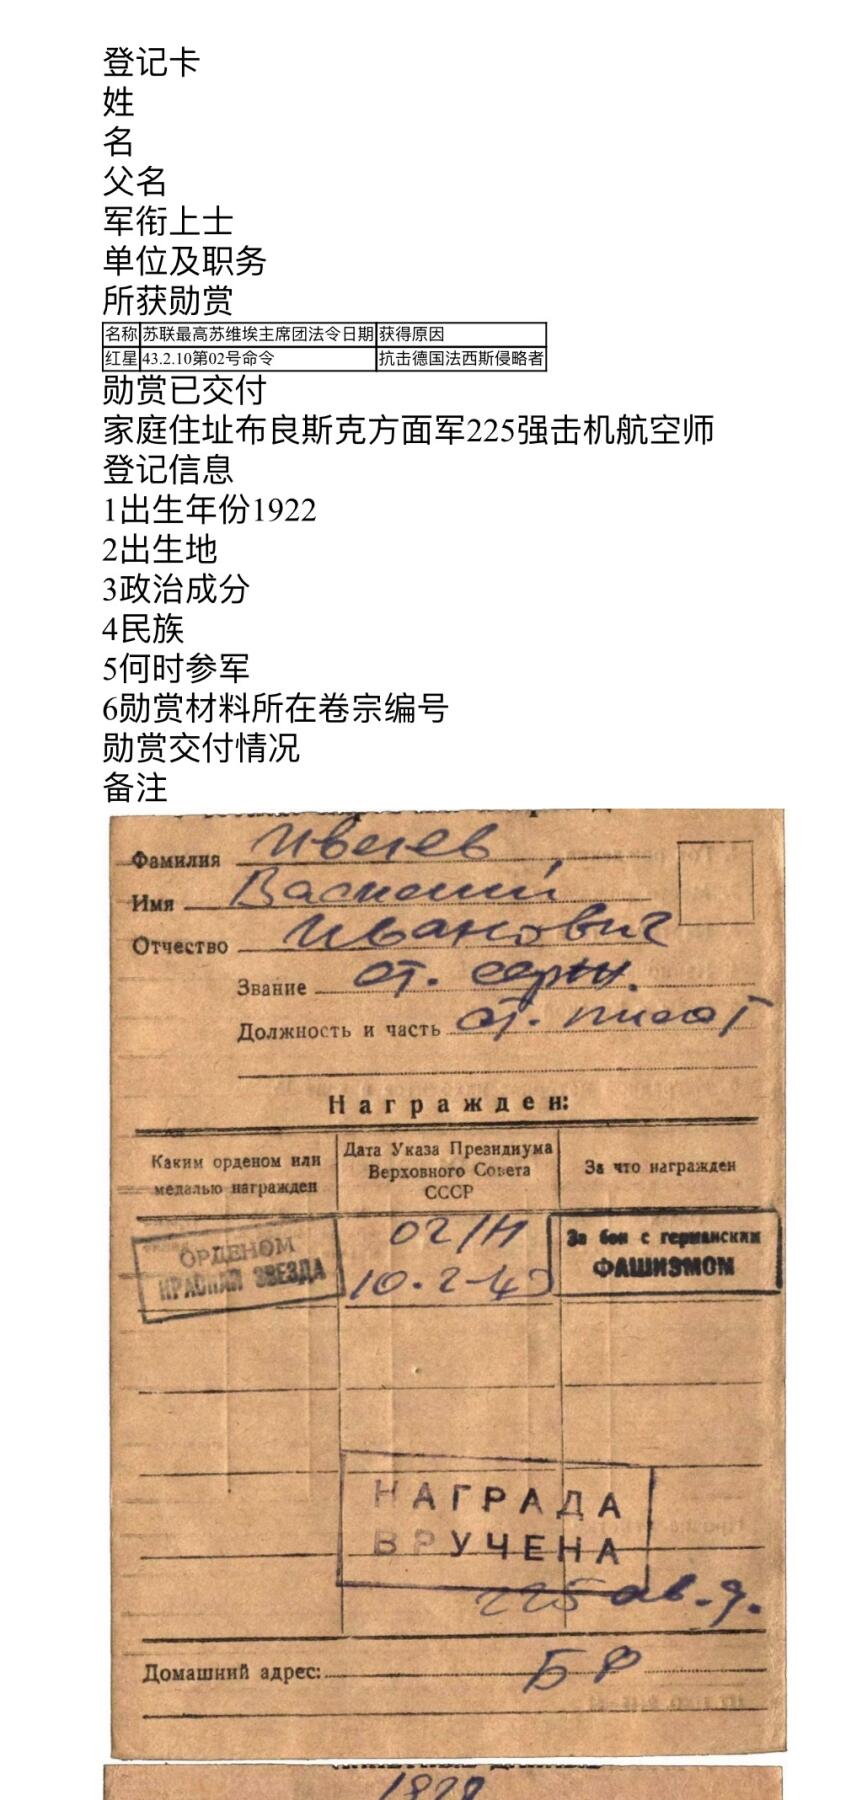 登记卡
姓
名
父名
军衔上士
单位及职务
所获勋赏
名称 苏联最高苏维埃主席团法令日期 获得原因
红星 43.2.10第02号命令 抗击德国法西斯侵略者
勋赏已交付
家庭住址布良斯克方面军225强击机航空师
登记信息
1出生年份1922
2出生地
3政治成分
4民族
5何时参军
6勋赏材料所在卷宗编号
勋赏交付情况
备注
Фамилия
Имя Василий
Отчество Иванович
Звание ст. серж.
Должность и часть ст. пилот
Награжден:
Каким орденом или медалью награжден
Дата Указа Президиума Верховного Совета СССР
За что награжден
ОРДЕНОМ
КРАСНАЯ ЗВЕЗДА
02/Н
10.2.43
За бои с германским
ФАШИЗМОМ
НАГРАДА
ВРУЧЕНА
225 ав. д.
Домашний адрес: БФ